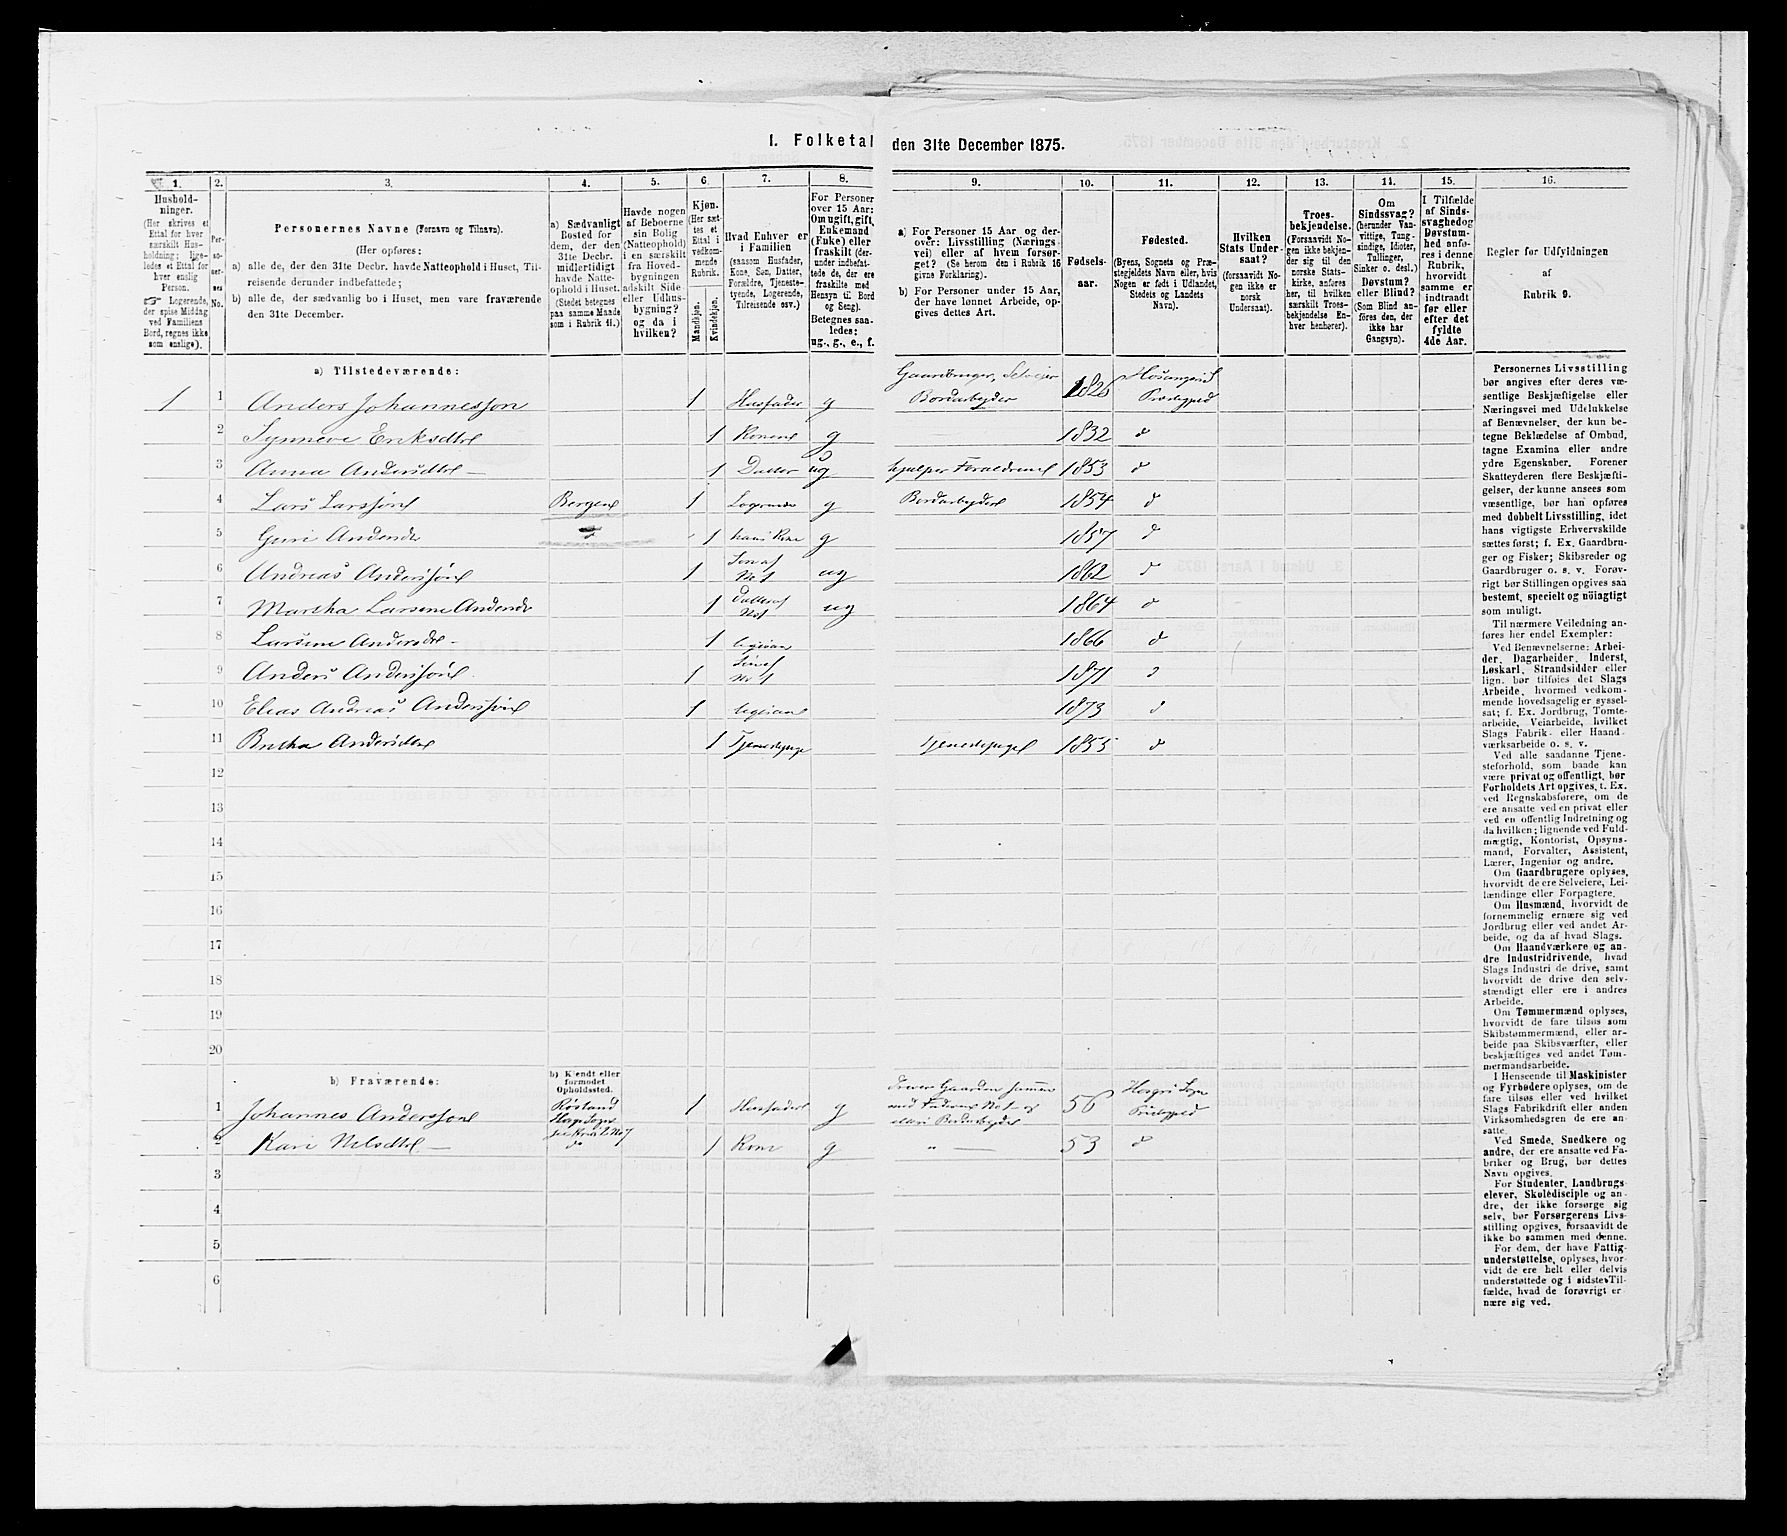 1. Folketal den 31te December 1875.
1. 2. 3. 4. 5. 6. 7. 8. 9. 10. 11. 12. 13. 14. 15. 16.
Hushold-
ninger.
(Her skrives et
Ettal for hver
særskilt Hus-
holdning; lige-
ledes et Ettal for
hver enslig
Person.
☞ Logerende,
der spise Middag
ved Familiens
Bord, regnes ikke
som enslige).
Per-
so-
ner-
nes
No.
Personernes Navne (Fornavn og Tilnavn).
(Her opføres:
a) alle de, der den 31te Decbr. havde Natteophold i Huset, Til-
reisende derunder indbefattede;
b) alle de, der sædvanlig bo i Huset, men vare fraværende
den 31te December.
a) Sædvanligt
Bosted for
dem, der den
31te Decbr.
midlertidigt
havde Natte-
ophold i Huset.
(Stedet betegnes
paa samme Maade
som i Rubrik 11.)
Havde nogen
af Beboerne
sin Bolig
(Natteophold)
i en særskilt
fra Hoved-
bygningen
adskilt Side-
eller Udhus-
bygning?
og da i
hvilken?
Kjøn.
(Her sæt-
tes et
Ettal i
vedkom-
mende
Rubrik.
Mandkjøn.
Kvindekjøn.
Hvad Enhver er
i Familien
(saasom Husfader,
Kone, Søn, Datter,
Forældre, Tjeneste-
tyende, Logerende,
Tilreisende osv.)
For Personer
over 15 Aar:
Om ugift, gift,
Enkemand
(Enke) eller
fraskilt (der-
under indbefat-
tede de, der ere
fraskilte med
Hensyn til Bord
og Seng).
Betegnes saa-
ledes:
ug., g., e., f.
a) For Personer 15 Aar og der-
over: Livsstilling (Nærings-
vei) eller af hvem forsør-
get? (Se herom den i Rubrik 16
givne Forklaring).
b) For Personer under 15 Aar,
der have lønnet Arbeide, op-
gives dettes Art.
Fødsels-
aar.
Fødested.
(Byens, Sognets og Præ-
stegjeldets Navn eller, hvis
Nogen er født i Udlandet,
Stedets og Landets
Navn).
Hvilken
Stats Under-
saat?
(forsaavidt No-
gen ikke er
norsk
Undersaat).
Troes-
bekjendelse.
(Forsaavidt No-
gen ikke bekjen-
der sig til den
norske Stats-
kirke, anføres
her, til hvilken
særskilt Troes-
bekjendelse En-
hver henhører).
Om
Sindssvag?
(herunder Van-
vittige, Tung-
sindige, Idioter,
Tullinger,
Sinker o. desl.)
Døvstum?
eller Blind?
(Som Blind an-
føres den, der
ikke har
Gangsyn).
I Tilfælde
af Sinds-
svaghed og
Døvstum-
hed anfø-
res i denne
Rubrik,
hvorvidt
samme er
indtraadt
før eller
efter det
fyldte
4de Aar.
Regler for Udfyldningen
af
Rubrik 9.
a) Tilstedeværende:
1 1 Anders Johannessøn 1 Husfader g Gaardbruger, Selveier Bordarbeyder 1826 Præstegjeld
2 Synneve Eriksdtr 1 Konen g 1832 d
3 Anna Andersdtr — 1 Datter ug hjælper Foreldrene 1853 d
4 Lars Larssøn Bergen 1 Logerende g Bordarbeyder 1854 d
5 Guri Andersdtr d 1 hans Kone g 1857 d
6 Andreas Anderssøn 1 Søn af No 1 ug 1862 d
7 Martha Larsine Andersdtr 1 Datter af No 1 ug 1864 d
8 Larsine Andersdtr - 1 ligesaa 1866 d
9 Anders Anderssøn 1 Søn af No 1 1871 d
10 Elias Andreas Anderssøn 1 ligesaa 1873 d
11 Britha Andersdtr 1 Tjenestepige Tjenestepige 1855 d
12
13
14
15
16
17
18
19
20
b) Fraværende:
b) Kjendt eller
formodet
Opholdssted.
1 Johannes Anderssøn 1 Husfader g Driver Gaarden sammen med Faderen No 1 og Bordarbeyder 56
2 Kari Nilsdtr — do 1 Kone g " — 53 d
3
4
5
6
Personernes Livsstilling
bør angives efter deres væ-
sentlige Beskjæftigelse eller
Næringsvei med Udelukkelse
af Benævnelser, der kun be-
tegne Beklædelse af Ombud,
tagne Examina eller andre
ydre Egenskaber. Forener
Skatteyderen flere Beskjæfti-
gelser, der kunne ansees som
væsentlige, bør han opføres
med dobbelt Livsstilling, idet
hans vigtigste Erhvervskilde
sættes først; f. Ex. Gaardbru-
ger og Fisker; Skibsreder og
Gaardbruger o. s. v. Forøv-
rigt bør Stillingen opgives saa
bestemt, specielt og nøiagtigt
som muligt.
Til nærmere Veiledning an-
føres her endel Exempler:
Ved Benævnelserne: Arbei-
der, Dagarbeider, Inderst,
Løskarl, Strandsidder eller
lign. bør tilføies det Slags
Arbeide, hvormed vedkom-
mende hovedsagelig er syssel-
sat; f. Ex. Jordbrug, Tomte-
arbeide, Veiarbeide, hvilket
Slags Fabrik- eller Haand-
værksarbeide o. s. v.
Ved alle saadanne Tjene-
steforhold, som baade kan
være privat og offentligt, bør
Forholdets Art opgives, t. Ex.
ved Regnskabsførere, om de
ere ansatte ved en privat eller
ved en offentlig Indretning og
da hvilken; lignende ved Fuld-
mægtig, Kontorist, Opsyns-
mand, Forvalter, Assistent,
Lærer, Ingeniør og andre.
Om Gaardbrugere oplyses,
hvorvidt de ere Selveiere, Lei-
lændinge eller Forpagtere.
Om Husmænd, hvorvidt de
fornemmelig ernære sig ved
Jordbrug eller ved andet Ar-
beide, og da af hvad Slags.
Om Haandværkere og an-
dre Industridrivende, hvad
Slags Industri de drive, samt
hvorvidt de drive den selv-
stændigt eller ere i andres
Arbeide.
Om Tømmermænd oplyses,
hvorvidt de fare tilsøs som
Skibstømmermænd, eller ar-
beide paa Skibsværfter, eller
beskjæftiges ved andet Tøm-
mermandsarbeide.
I Henseende til Maskinister
og Fyrbødere oplyses, om de
fare tilsøs eller ved hvilket
Slags Fabrikdrift eller anden
Virksomhedsgren de ere an-
satte.
Ved Smede, Snedkere og
andre, der ere ansatte ved Fa-
briker og Brug, bør dettes
Navn opgives.
For Studenter, Landbrugs-
elever, Skoledisciple og an-
dre, der ikke forsørge sig
selv, bør Forsørgerens Livs-
stilling opgives, forsaavidt de
ikke bo sammen med denne.
For dem, der have Fattig-
understøttelse, oplyses, hvor-
vidt de ere helt eller delvis
understøttede og i sidste Til-
fælde, hvad de forøvrigt er-
nære sig ved.